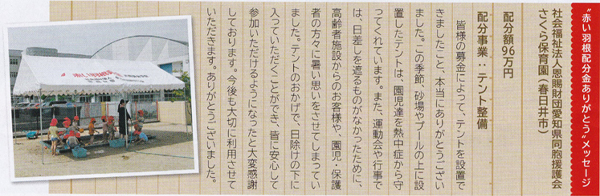 "赤い羽根配分金ありがとう"メッセージ
社会福祉法人恩賜財団愛知県同胞援護会
さくら保育園（春日井市）
配分額96万円
配分事業：テント整備
皆様の募金によって、テントを設置で
きましたこと、本当にありがとうござい
ました。この季節、砂場やプールの上に設
置したテントは、園児達を熱中症から守
ってくれています。また、運動会や行事で
は、日差しを遮るものがなかったために、
高齢者施設からのお客様や、園児・保護
者の方々に暑い思いをさせてしまってい
ました。テントのおかげで、日除けの下に
入っていただくことができ、皆に安心して
参加いただけるようになったと大変感謝
しております。今後も大切に利用させて
いただきます。ありがとうございました。